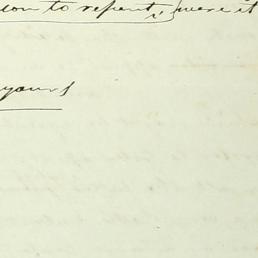 ion to repent, were it
yours